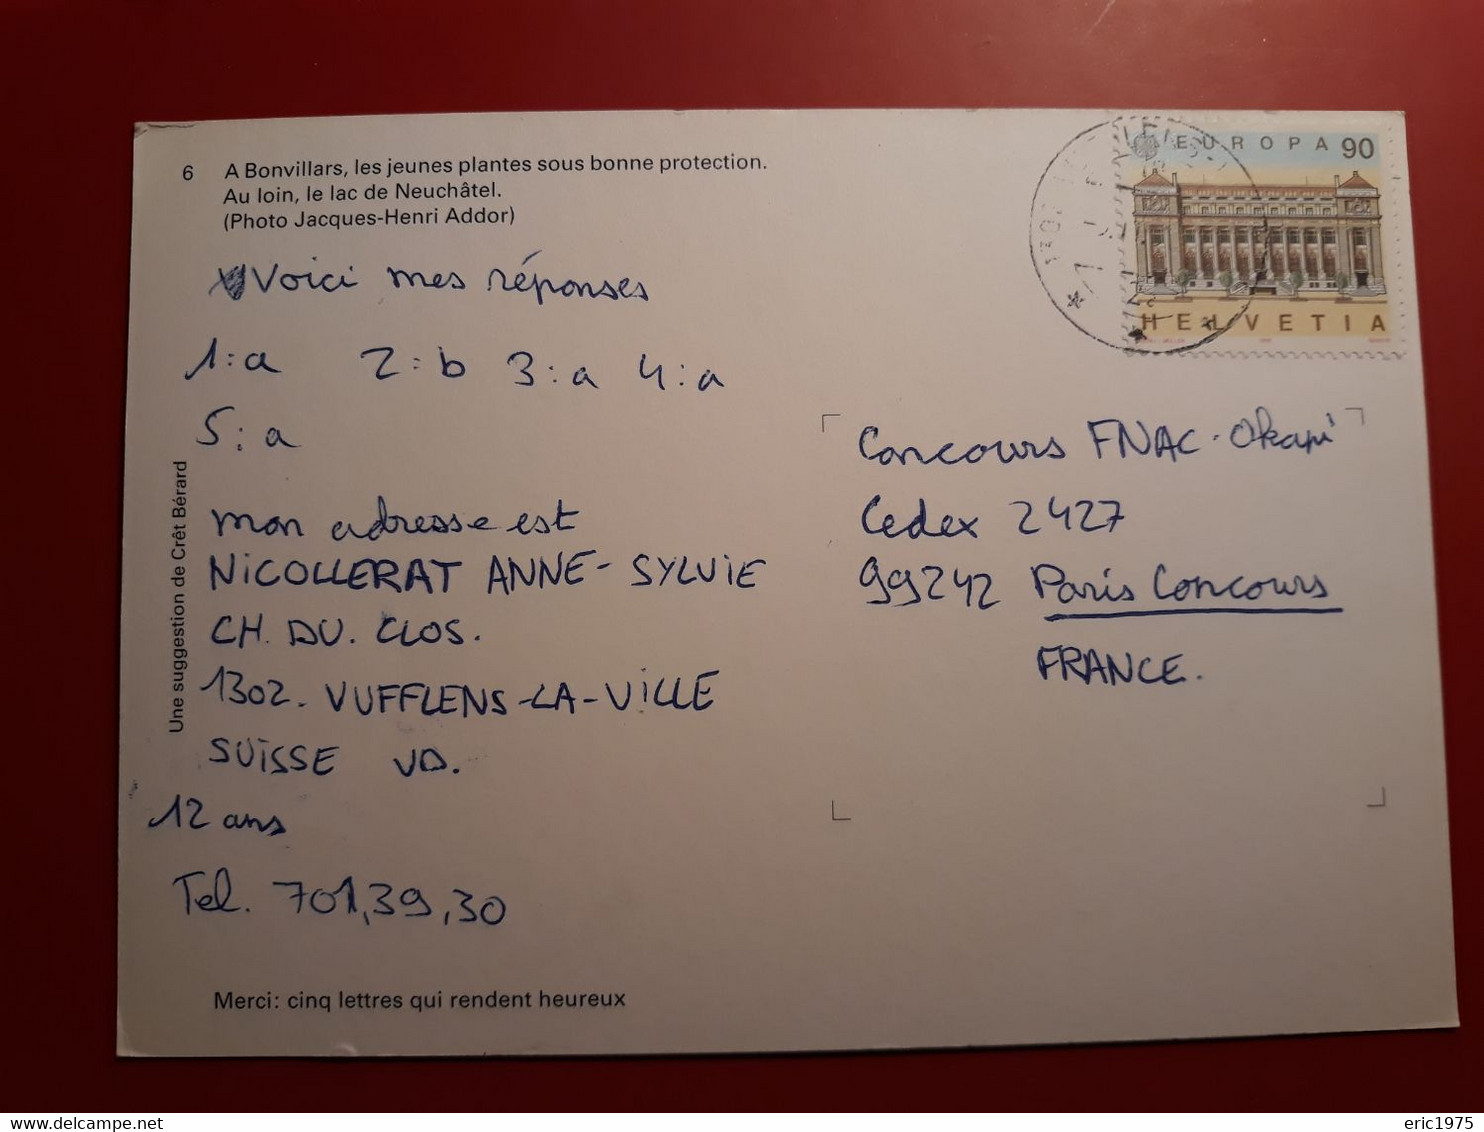 6 A Bonvillars, les jeunes plantes sous bonne protection.
Au loin, le lac de Neuchâtel.
(Photo Jacques-Henri Addor)
Voici mes réponses
1:a 2:b 3:a 4:a
5:a
mon adresse est
NICOLLERAT ANNE-SYLVIE
CH. DU. CLOS.
1302. VUFFLENS-LA-VILLE
SUISSE VD.
12 ans
Tel. 701,39,30
Merci: cinq lettres qui rendent heureux
Une suggestion de Crêt Bérard
EUROPA 90
HELVETIA
Concours FNAC-Okapi
Cedex 2427
99242 Paris Concours
FRANCE.
delcampe.net
eric1975